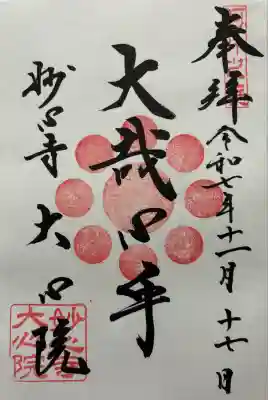 奉拝 令和七年十一月十七日
大哉心乎
妙心寺 大心院
妙心寺
大心院